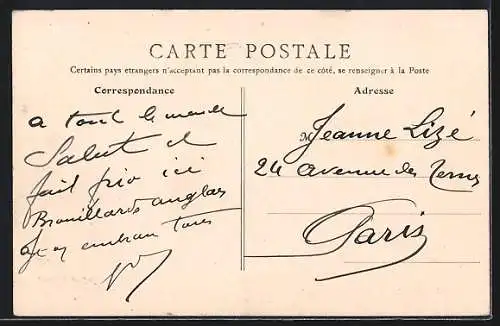 CARTE POSTALE
Certains pays étrangers n'acceptant pas la correspondance de ce côté, se renseigner à la Poste
Correspondance
Adresse
a tout le monde
Salut et
fait frio ici
Brouillards anglais
tous
M Jeanne Lizé
24 avenue des Ternes
Paris